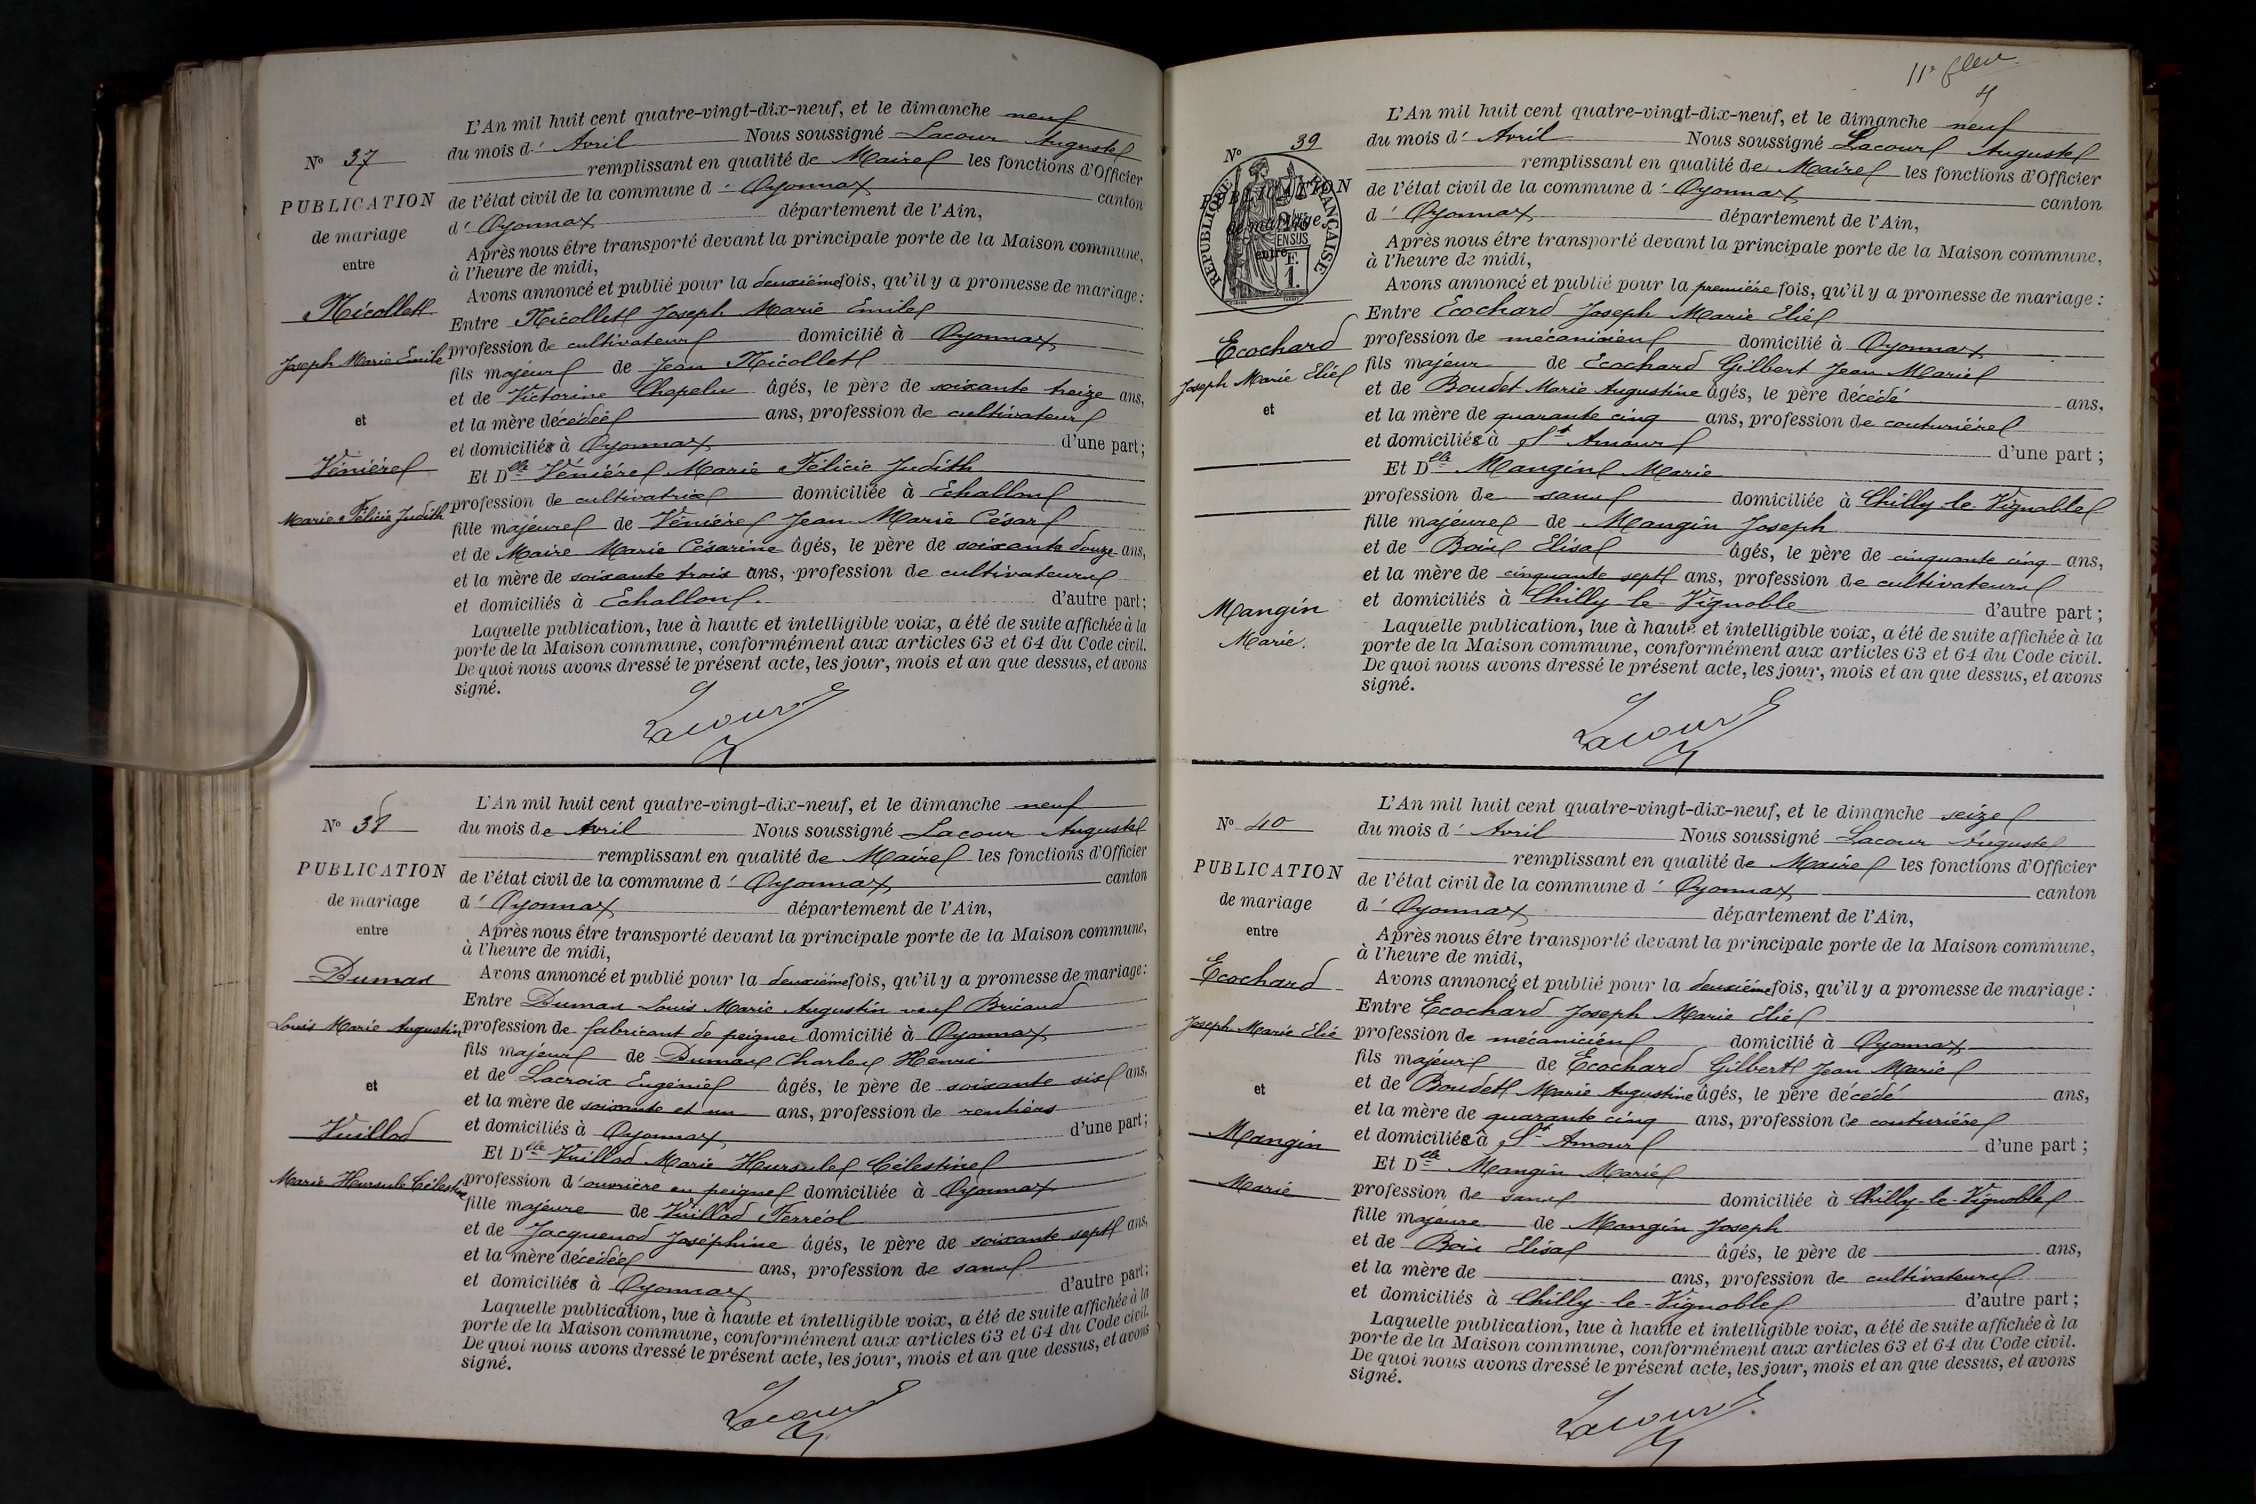 L'An mil huit cent quatre-vingt-dix-neuf, et le dimanche neuf
N° 37
du mois d' Avril Nous soussigné Lacour Auguste
remplissant en qualité de Maire les fonctions d'Officier
PUBLICATION
de mariage
entre
de l'état civil de la commune d' Oyonnax canton
d' Oyonnax département de l'Ain,
Après nous être transporté devant la principale porte de la Maison commune,
à l'heure de midi,
Avons annoncé et publié pour la deuxième fois, qu'il y a promesse de mariage :
Nicollet
Joseph Marie Emile
et
Vénière
Marie Félicie Judith
Entre Nicollet Joseph Marie Emile
profession de cultivateur domicilié à Oyonnax
fils majeur de Jean Nicollet
et de Victorine Chapelu âgés, le père de soixante treize ans,
et la mère décédée ans, profession de cultivateur
et domiciliés à Oyonnax d'une part ;
Et Dlle Vénière Marie Félicie Judith
profession de cultivatrice domiciliée à Echallon
fille majeure de Vénière Jean Marie César
et de Maire Marie Césarine âgés, le père de soixante douze ans,
et la mère de soixante trois ans, profession de cultivateurs
et domiciliés à Echallon. d'autre part ;
Laquelle publication, lue à haute et intelligible voix, a été de suite affichée à la
porte de la Maison commune, conformément aux articles 63 et 64 du Code civil.
De quoi nous avons dressé le présent acte, les jour, mois et an que dessus, et avons
signé.
Lacour
L'An mil huit cent quatre-vingt-dix-neuf, et le dimanche neuf
N° 38
du mois de Avril Nous soussigné Lacour Auguste
remplissant en qualité de Maire les fonctions d'Officier
PUBLICATION
de mariage
entre
de l'état civil de la commune d' Oyonnax canton
d' Oyonnax département de l'Ain,
Après nous être transporté devant la principale porte de la Maison commune,
à l'heure de midi,
Avons annoncé et publié pour la deuxième fois, qu'il y a promesse de mariage :
Dumas
Louis Marie Augustin
et
Vuillod
Marie Hursule Célestine
Entre Dumas Louis Marie Augustin veuf Bricaud
profession de fabricant de peignes domicilié à Oyonnax
fils majeur de Dumas Charles Henri
et de Lacroix Eugénie âgés, le père de soixante six ans,
et la mère de soixante et un ans, profession de rentiers
et domiciliés à Oyonnax d'une part ;
Et Dlle Vuillod Marie Hursule Célestine
profession d'ouvrière en peignes domiciliée à Oyonnax
fille majeure de Vuillod Ferréol
et de Jacquenod Joséphine âgés, le père de soixante sept ans,
et la mère décédée ans, profession de sans
et domiciliés à Oyonnax d'autre part ;
Laquelle publication, lue à haute et intelligible voix, a été de suite affichée à la
porte de la Maison commune, conformément aux articles 63 et 64 du Code civil.
De quoi nous avons dressé le présent acte, les jour, mois et an que dessus, et avons
signé.
Lacour
L'An mil huit cent quatre-vingt-dix-neuf, et le dimanche neuf
N° 39
du mois d' Avril Nous soussigné Lacour Auguste
remplissant en qualité de Maire les fonctions d'Officier
PUBLICATION
de mariage
entre
RÉPUBLIQUE FRANÇAISE
EN SUS
F.
1.
de l'état civil de la commune d' Oyonnax canton
d' Oyonnax département de l'Ain,
Après nous être transporté devant la principale porte de la Maison commune,
à l'heure de midi,
Avons annoncé et publié pour la première fois, qu'il y a promesse de mariage :
Ecochard
Joseph Marie Elie
et
Mangin
Marie.
Entre Ecochard Joseph Marie Elie
profession de mécanicien domicilié à Oyonnax
fils majeur de Ecochard Gilbert Jean Marie
et de Boudet Marie Augustine âgés, le père décédé ans,
et la mère de quarante cinq ans, profession de couturière
et domiciliés à St Amour d'une part ;
Et Dlle Mangin Marie
profession de sans domiciliée à Chilly-le-Vignoble
fille majeure de Mangin Joseph
et de Bois Elisa âgés, le père de cinquante cinq ans,
et la mère de cinquante sept ans, profession de cultivateurs
et domiciliés à Chilly-le-Vignoble d'autre part ;
Laquelle publication, lue à haute et intelligible voix, a été de suite affichée à la
porte de la Maison commune, conformément aux articles 63 et 64 du Code civil.
De quoi nous avons dressé le présent acte, les jour, mois et an que dessus, et avons
signé.
Lacour
L'An mil huit cent quatre-vingt-dix-neuf, et le dimanche seize
N° 40
du mois d' Avril Nous soussigné Lacour Auguste
remplissant en qualité de Maire les fonctions d'Officier
PUBLICATION
de mariage
entre
de l'état civil de la commune d' Oyonnax canton
d' Oyonnax département de l'Ain,
Après nous être transporté devant la principale porte de la Maison commune,
à l'heure de midi,
Avons annoncé et publié pour la deuxième fois, qu'il y a promesse de mariage :
Ecochard
Joseph Marie Elie
et
Mangin
Marie
Entre Ecochard Joseph Marie Elie
profession de mécanicien domicilié à Oyonnax
fils majeur de Ecochard Gilbert Jean Marie
et de Boudet Marie Augustine âgés, le père décédé ans,
et la mère de quarante cinq ans, profession de couturière
et domiciliés à St Amour d'une part ;
Et Dlle Mangin Marie
profession de sans domiciliée à Chilly-le-Vignoble
fille majeure de Mangin Joseph
et de Bois Elisa âgés, le père de ans,
et la mère de ans, profession de cultivateurs
et domiciliés à Chilly-le-Vignoble d'autre part ;
Laquelle publication, lue à haute et intelligible voix, a été de suite affichée à la
porte de la Maison commune, conformément aux articles 63 et 64 du Code civil.
De quoi nous avons dressé le présent acte, les jour, mois et an que dessus, et avons
signé.
Lacour